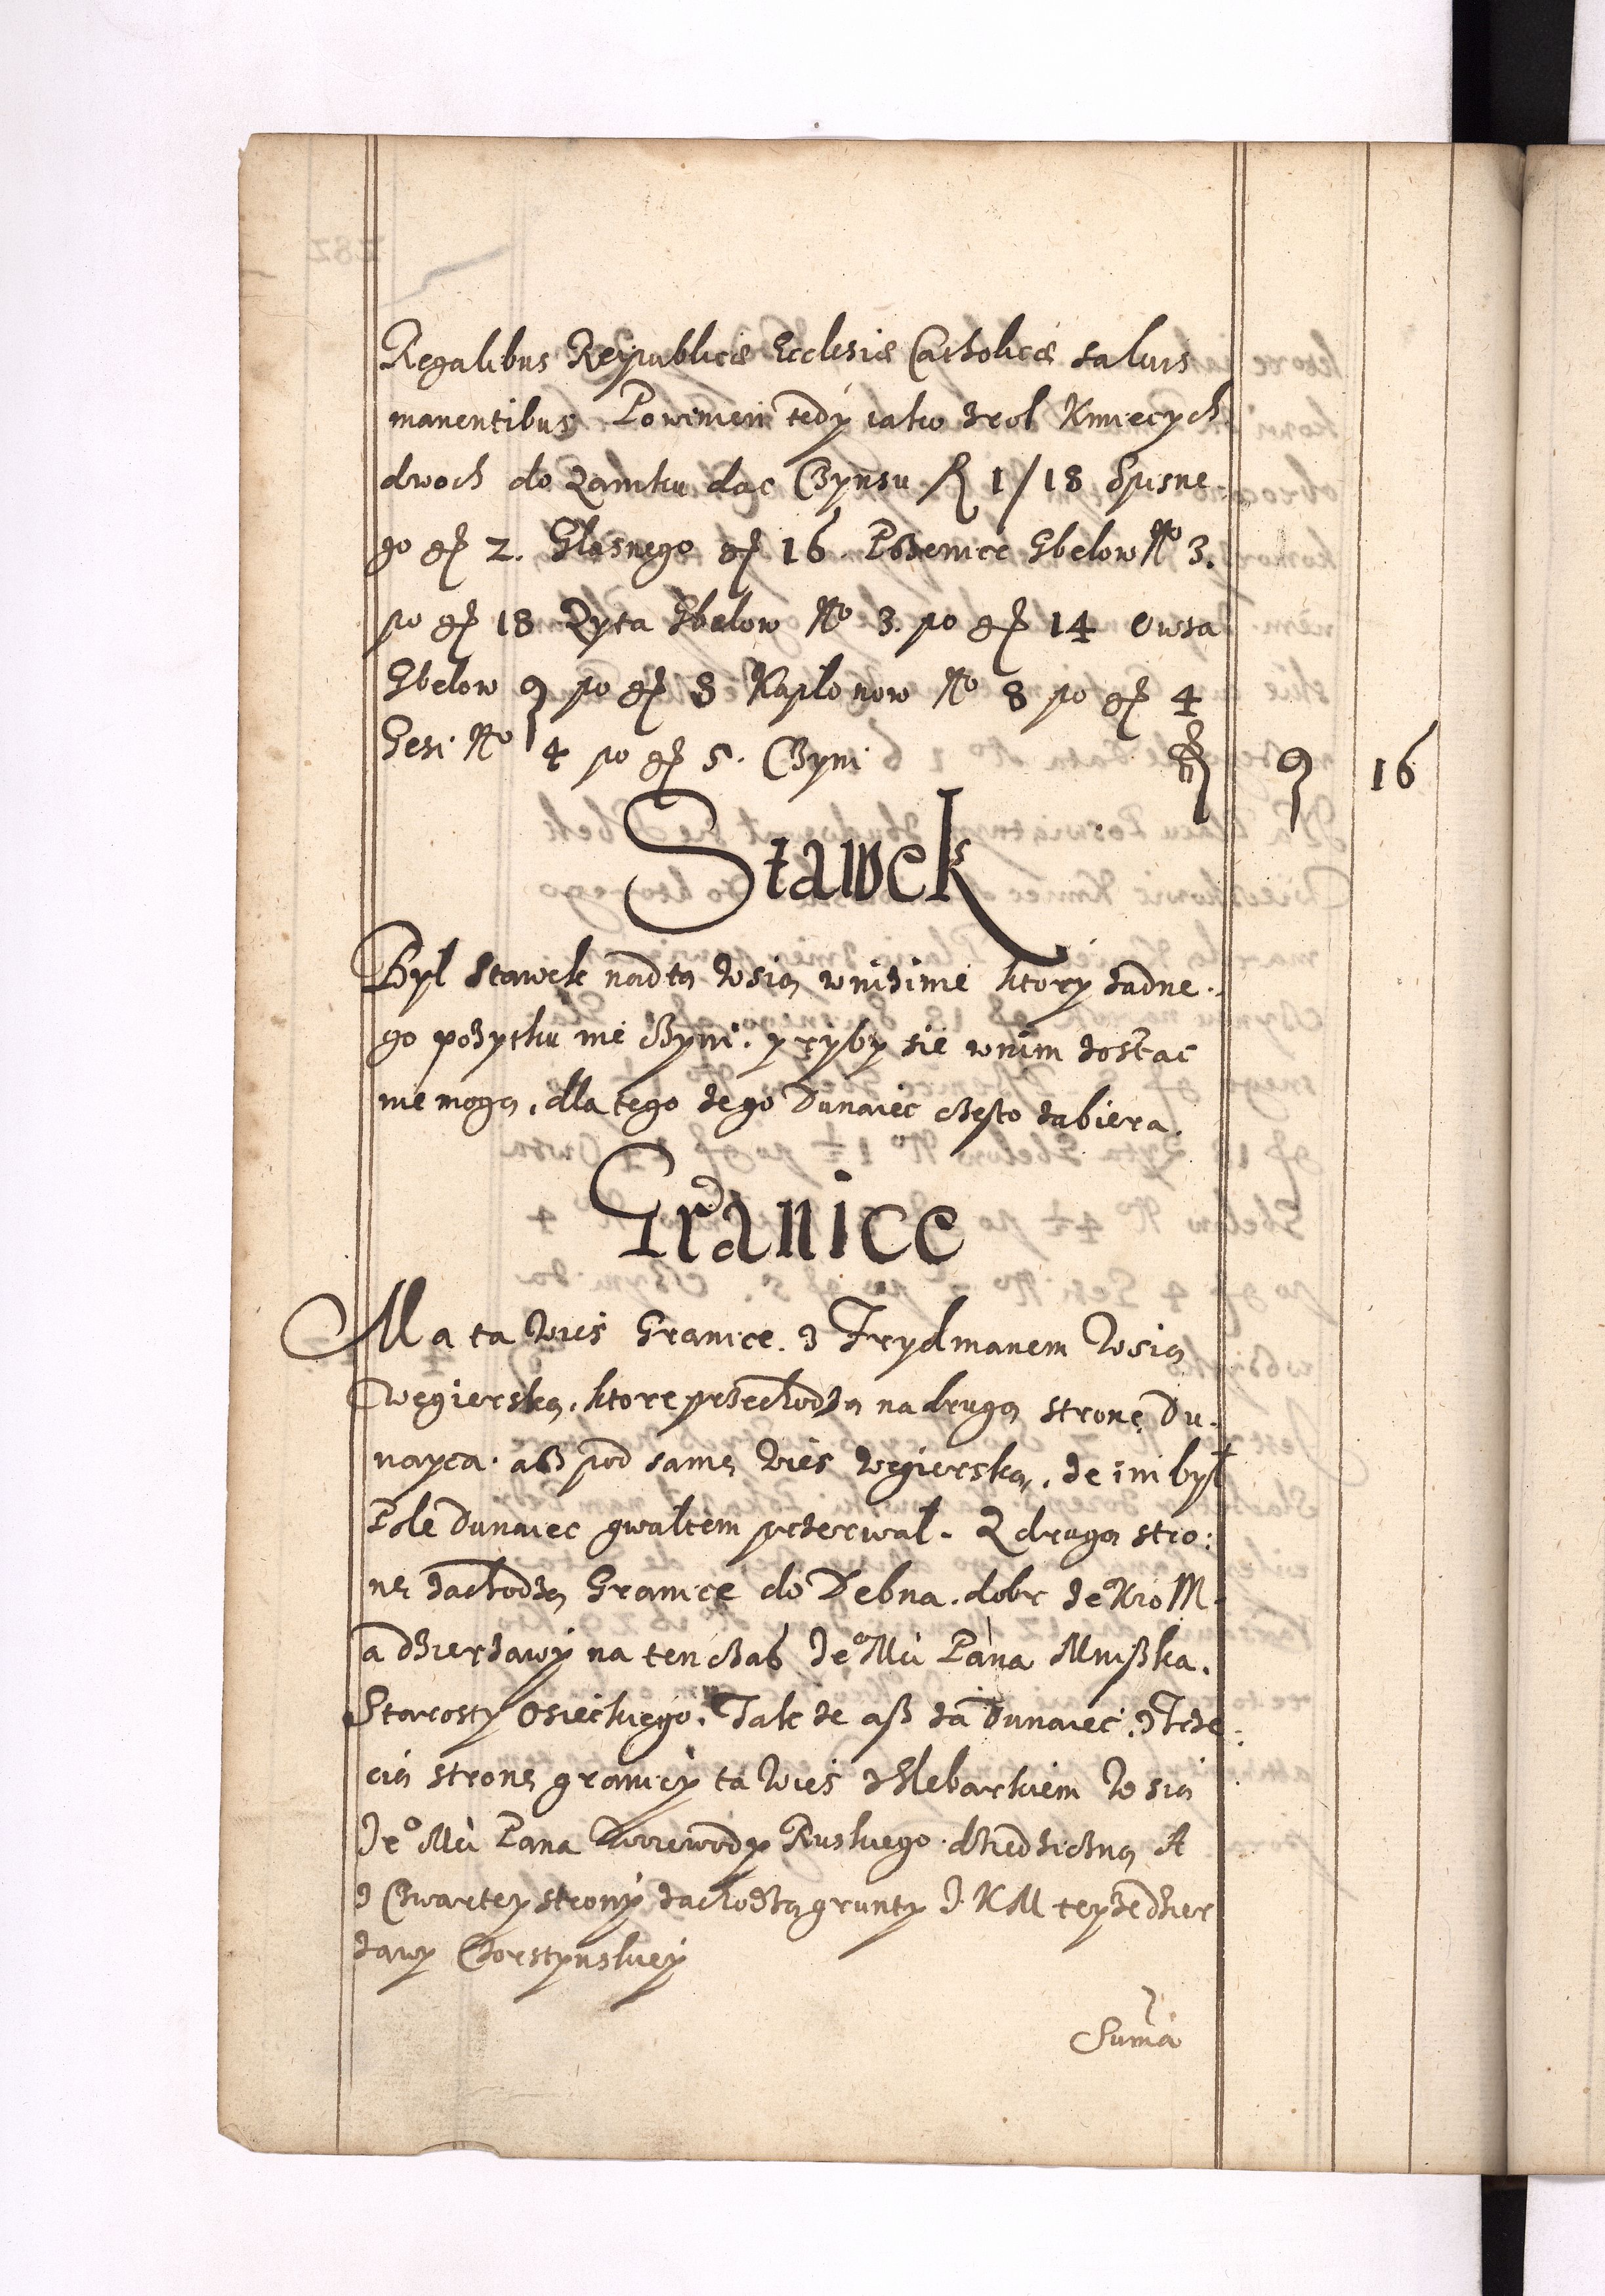 Regalibus Reipublicæ Ecclesiæ Catholicæ saluis
manentibus Powinien tedy iako zrol Kmiecych
dwoch do Zamku dac Czynsu fl 1/18 Spisne-
go gr 2. Glosnego gr 16. Pszenice Gbelow No 3.
po gr 18 Zyta Gbelow No 3. po gr 14 Owsa
Gbelow 9 po gr 8 Kaplonow No 8 po gr 4
Gesi No 4 po gr 5. Czyni fl 9 16
Stawek
Był Stawek nadtą Wsią wnizinie ktory zadne-
go pożytku nie czyni. y ryby sie wnim zostac
nie mogą, dla tego że go Dunaiec często zabiera.
Granice
Ma ta Wies Granice. z Frydmanem Wsią
Węgierską, ktore przechodzą na drugą stronę Du-
nayca. asz pod samę Wies Węgierską, że im był
Pole Dunaiec gwałtem przerwał. Z drugą stro:
nę zachodzą Granice do Debna. dobr Je Kro M
a dzierzawy na ten czas Jeo Mci Pana Mniszka.
Starosty Osieckiego. Tak że asz za Dunaiec. z Trze:
cią stronę graniczy ta Wies z Hlebarkiem Wsią
Jeo Mci Pana Woiewody Ruskiego dziedziczną A
z Czwartey strony zachodzą grunty J K M teyże dzier
zawy Czorstynskiey
Suma